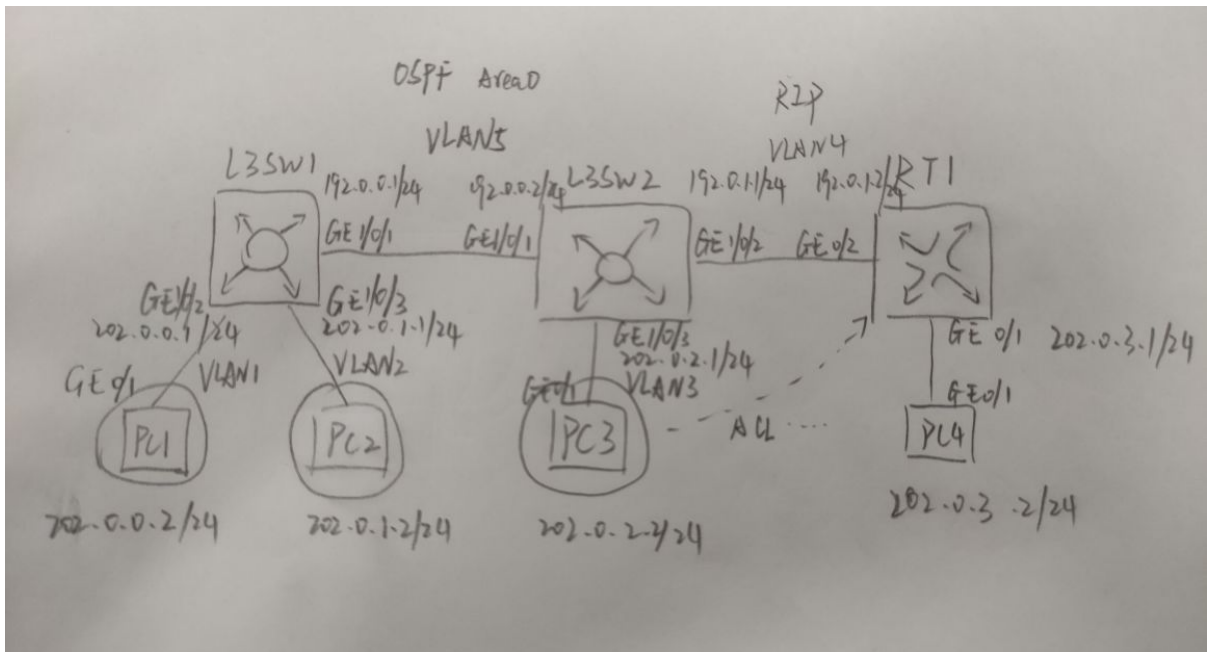 OSPF Area0
RIP
VLAN5
VLAN4
L3SW1
192.0.0.1/24
192.0.0.2/24
L3SW2
192.0.1.1/24
192.0.1.2/24
RT1
GE1/0/1
GE1/0/1
GE1/0/2
GE0/2
GE1/0/2
202.0.0.1/24
GE1/0/3
202.0.1.1/24
GE1/0/3
202.0.2.1/24
GE0/1
202.0.3.1/24
GE0/1
VLAN1
VLAN2
GE0/1
VLAN3
GE0/1
PC1
PC2
PC3
ACL
PC4
202.0.0.2/24
202.0.1.2/24
202.0.2.2/24
202.0.3.2/24